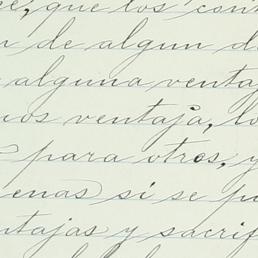 que los con
de algun d
alguna venta
ventaja, lo
para otros, y
enas si se p
ntajas y sacrif